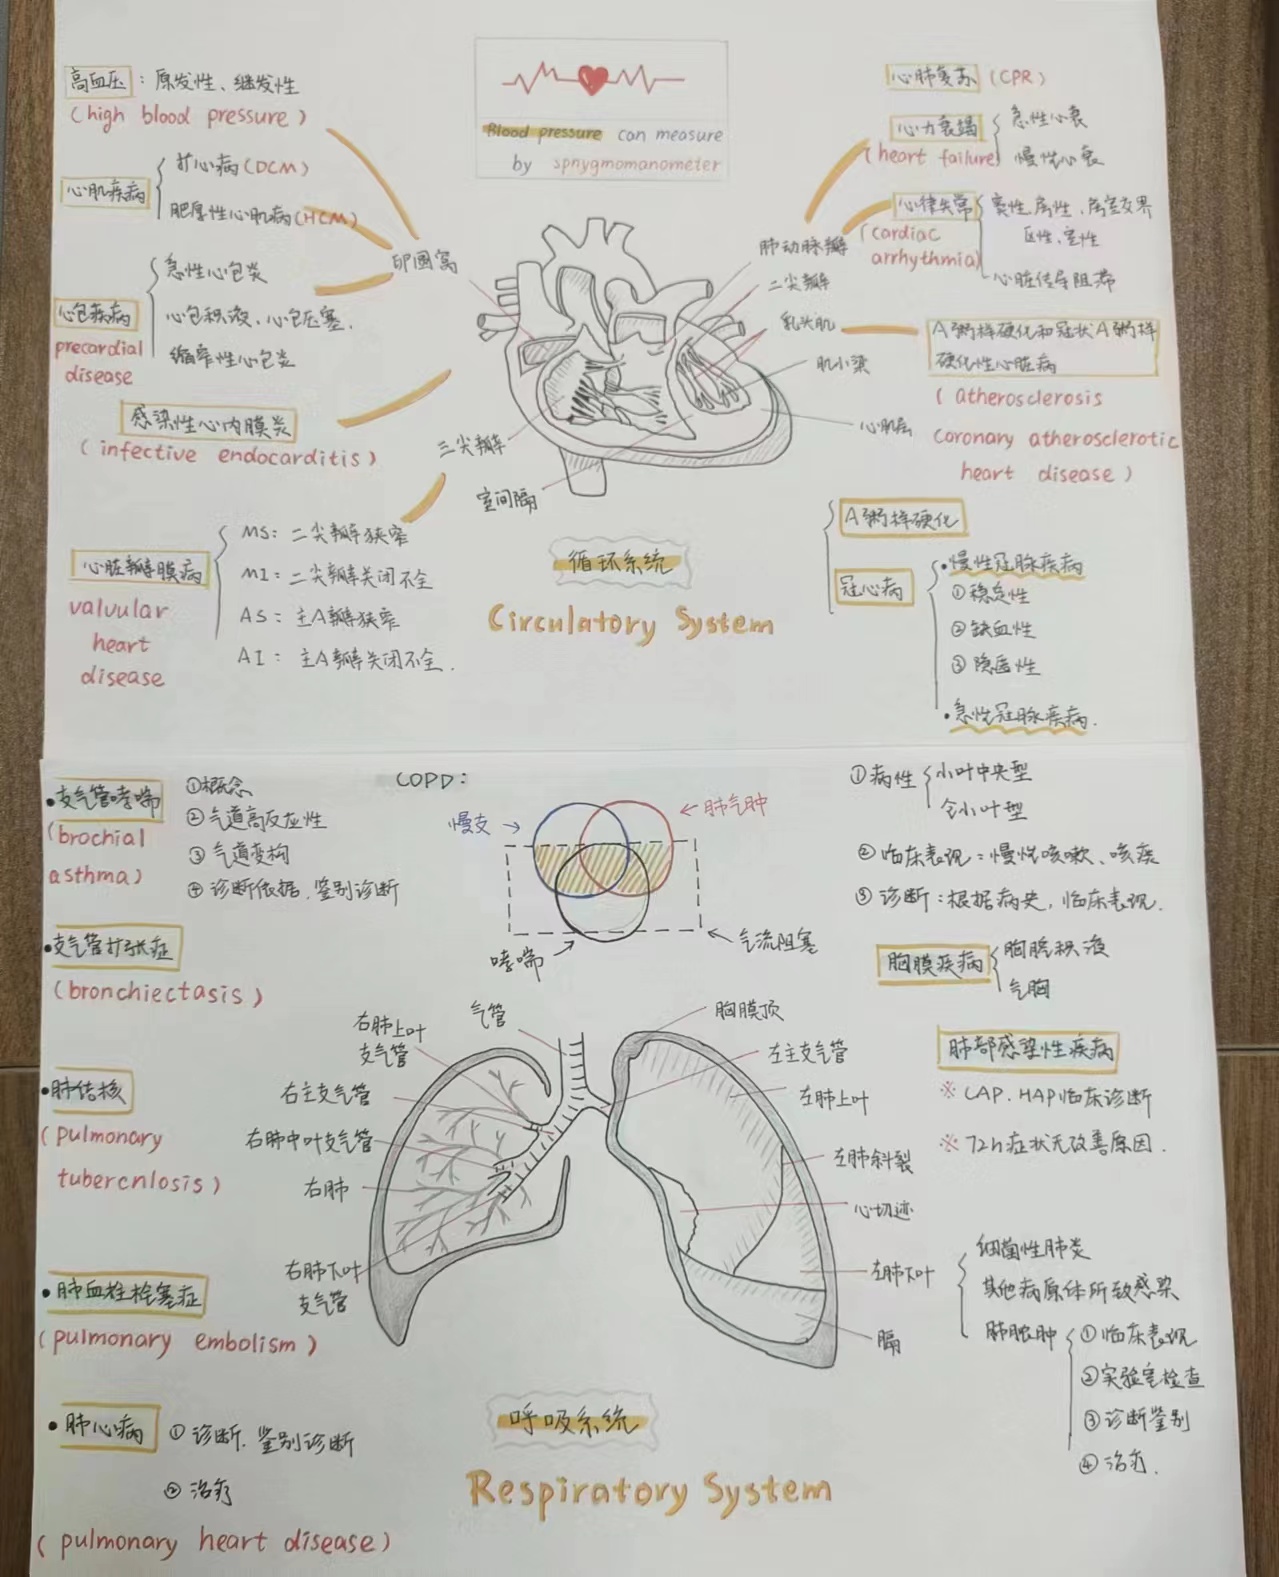 高血压：原发性、继发性
(high blood pressure)
心肌疾病
扩心病(DCM)
肥厚性心肌病(HCM)
心包疾病
precardial
disease
急性心包炎
心包积液、心包压塞.
缩窄性心包炎
感染性心内膜炎
(infective endocarditis)
心脏瓣膜病
valvular
heart
disease
MS: 二尖瓣狭窄
MI: 二尖瓣关闭不全
AS: 主A瓣狭窄
AI: 主A瓣关闭不全.
Blood pressure can measure
by spnygmomanometer
卵圆窝
三尖瓣
室间隔
肺动脉瓣
二尖瓣
乳头肌
肌小梁
心肌层
循环系统
Circulatory System
心肺复苏 (CPR)
心力衰竭
(heart failure)
急性心衰
慢性心衰
心律失常
(cardiac
arrhythmia)
窦性、房性、房室交界
区性、室性
心脏传导阻滞
A粥样硬化和冠状A粥样
硬化性心脏病
(atherosclerosis
coronary atherosclerotic
heart disease)
A粥样硬化
冠心病
·慢性冠脉疾病
①稳定性
②缺血性
③隐匿性
·急性冠脉疾病.
·支气管哮喘
(brochial
asthma)
①概念
②气道高反应性
③气道变构
④诊断依据.鉴别诊断
·支气管扩张症
(bronchiectasis)
·肺结核
(pulmonary
tubercnlosis)
·肺血栓栓塞症
(pulmonary embolism)
·肺心病
①诊断.鉴别诊断
②治疗
(pulmonary heart disease)
COPD:
慢支→
←肺气肿
哮喘
气流阻塞
①病性
小叶中央型
全小叶型
②临床表现：慢性咳嗽、咳痰
③诊断：根据病史，临床表现.
胸膜疾病
胸腔积液
气胸
气管
右肺上叶
支气管
右主支气管
右肺中叶支气管
右肺
右肺下叶
支气管
胸膜顶
左主支气管
左肺上叶
左肺斜裂
心切迹
左肺下叶
膈
肺部感染性疾病
※ CAP、HAP临床诊断
※ 72h症状无改善原因.
细菌性肺炎
其他病原体所致感染
肺脓肿
①临床表现
②实验室检查
③诊断鉴别
④治疗.
呼吸系统
Respiratory System